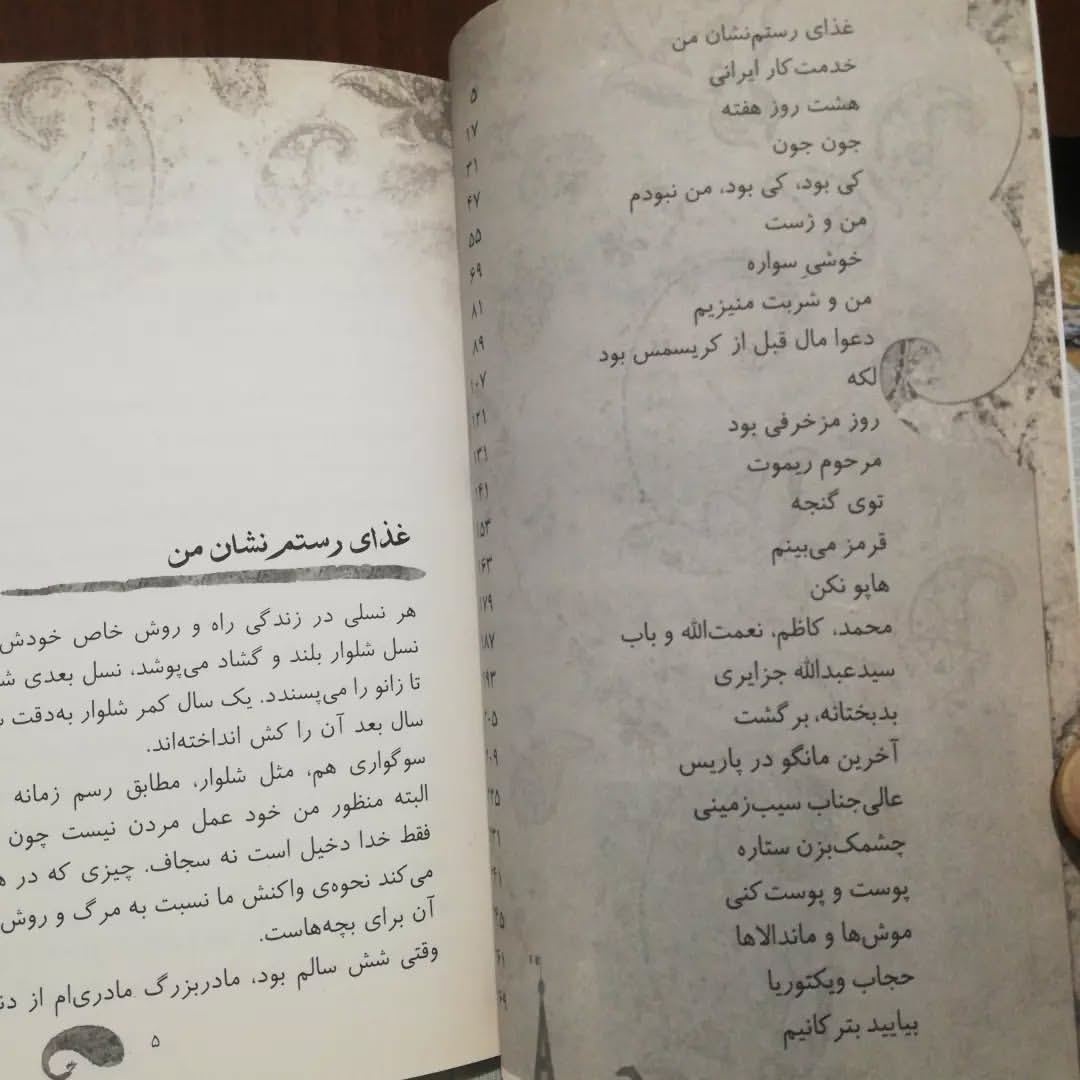 غذای رستم‌نشان من
خدمت‌کار ایرانی
هشت روز هفته
جون جون
کی بود، کی بود، من نبودم
من و ژست
خوشیِ سواره
من و شربت منیزیم
دعوا مال قبل از کریسمس بود
لکه
روز مزخرفی بود
مرحوم ریموت
توی گنجه
قرمز می‌بینم
هاپو نکن
محمد، کاظم، نعمت‌الله و باب
سیدعبدالله جزایری
بدبختانه، برگشت
آخرین مانگو در پاریس
عالی‌جناب سیب‌زمینی
چشمک‌بزن ستاره
پوست و پوست‌کنی
موش‌ها و ماندالاها
حجاب ویکتوریا
بیایید بتر کانیم
۵
۱۷
۳۱
۴۷
۵۵
۶۹
۸۱
۸۹
۱۰۷
۱۲۱
۱۳۱
۱۴۱
۱۵۳
۱۶۳
۱۷۹
۱۸۷
غذای رستم‌نشان من
هر نسلی در زندگی راه و روش خاص خودش
نسل شلوار بلند و گشاد می‌پوشد، نسل بعدی
تا زانو را می‌پسندد. یک سال کمر شلوار به‌دقت
سال بعد آن را کش انداخته‌اند.
سوگواری هم، مثل شلوار، مطابق رسم زمانه
البته منظور من خود عمل مردن نیست چون
فقط خدا دخیل است نه سجاف. چیزی که در
می‌کند نحوه‌ی واکنش ما نسبت به مرگ و روش
آن برای بچه‌هاست.
وقتی شش سالم بود، مادربزرگ مادری‌ام از
۵